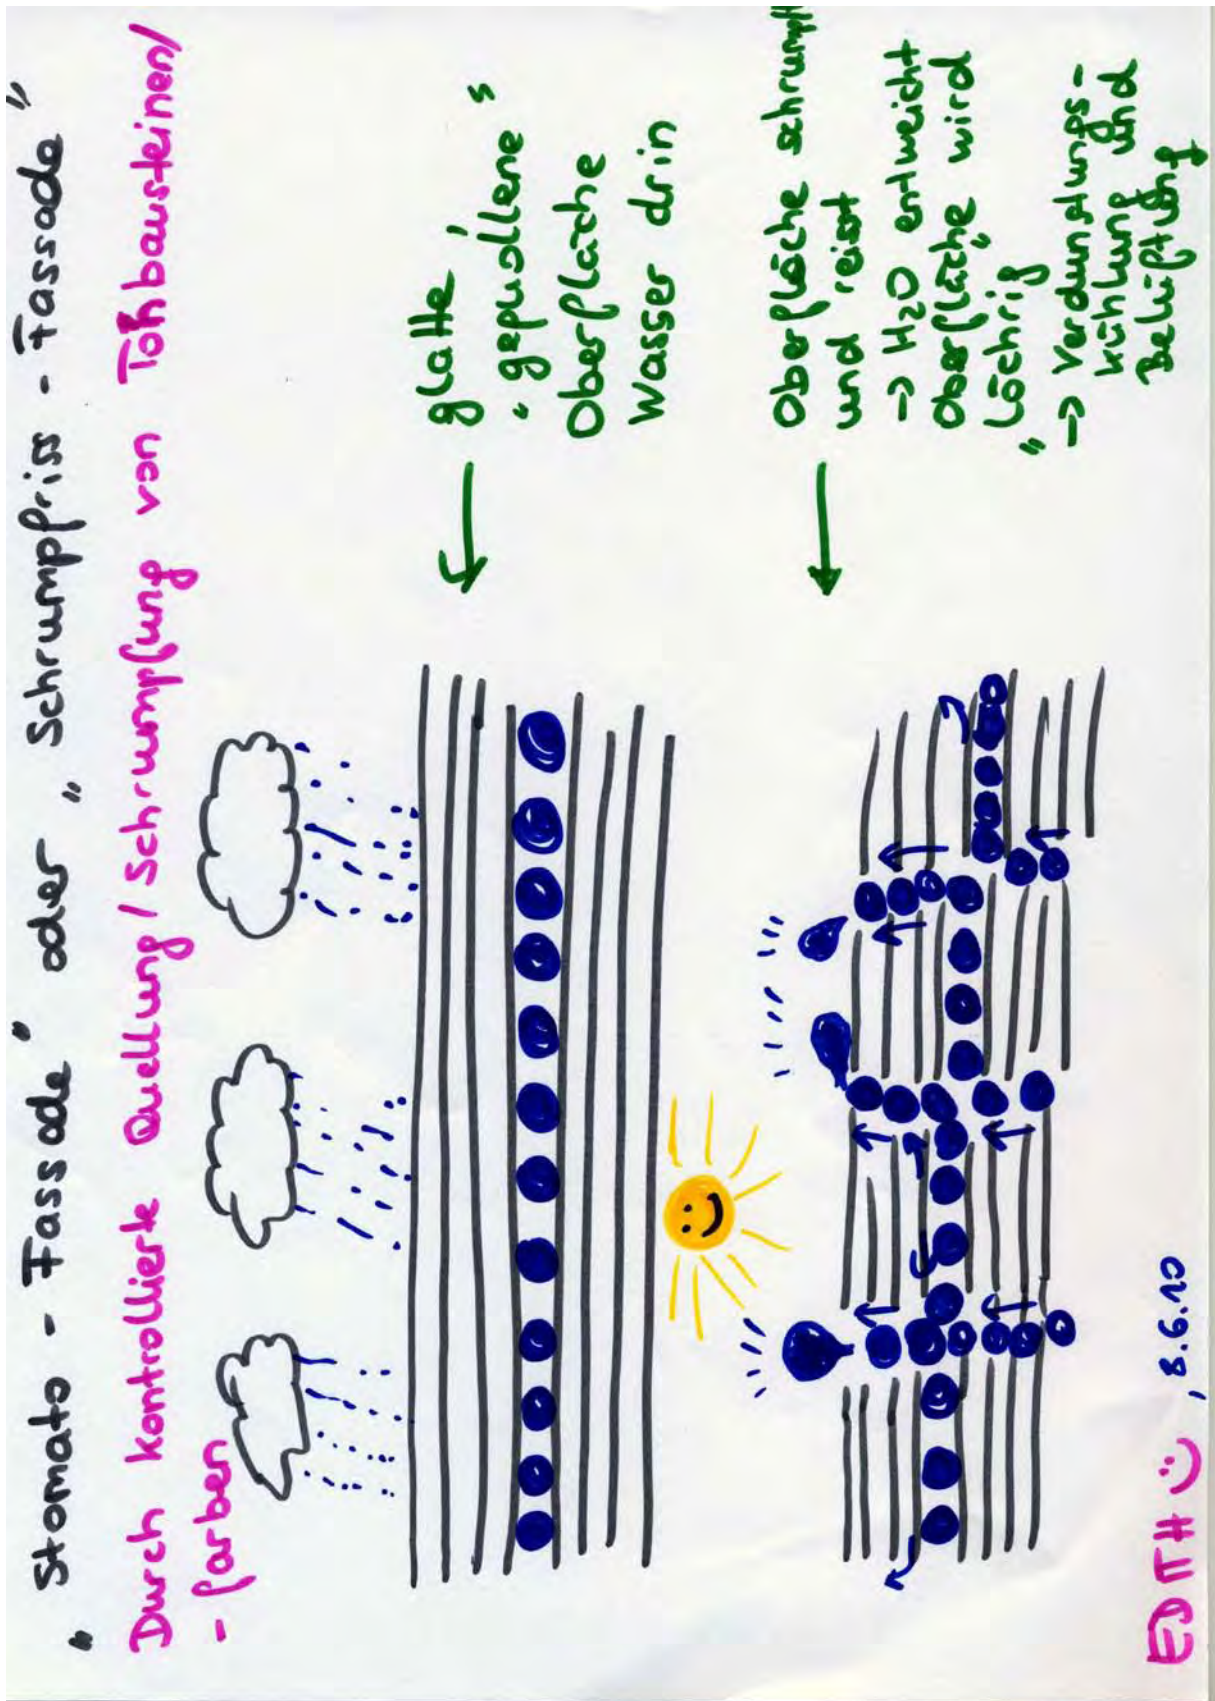 "Stomato - Fassade" oder "Schrumpfriss - Fassade"
Durch kontrollierte Quellung / Schrumpfung von Tonbausteinen/
- farben
glatte,
"gequollene"
Oberfläche
Wasser drin
Oberfläche schrumpft
und reist
-> H2O entweicht
Oberfläche wird
"löchrig"
-> Verdunstungs-
kühlung und
Belüftung
EDITH :) , 8.6.10